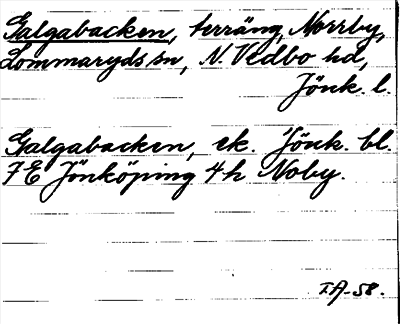 Galgabacken, terräng, Norrby,
Lommaryds sn, N. Vedbo hd,
Jönk. l.
Galgabacken, ek. Jönk. bl.
7E Jönköping 4h Noby.
T.A-58.